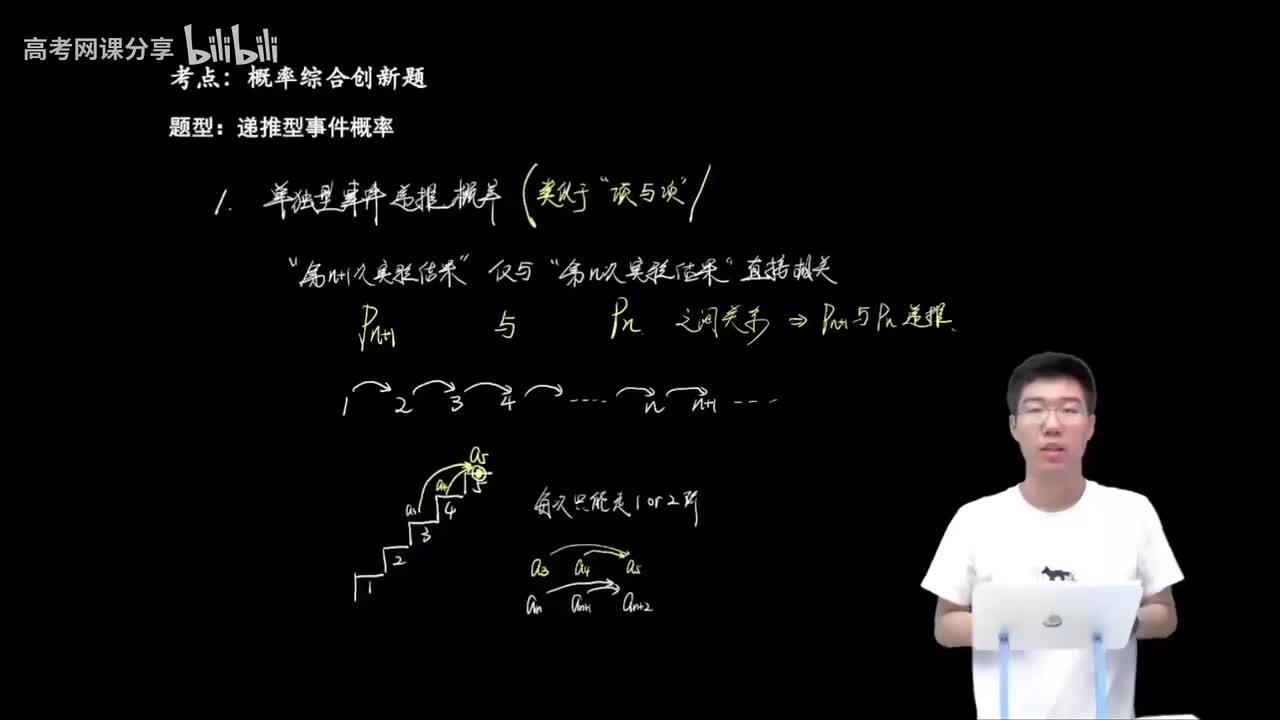 高考网课分享 bilibili
考点：概率综合创新题
题型：递推型事件概率
1. 单独型事件递推概率（类似于“项与项”）
“第n+1次实验结果” 仅与 “第n次实验结果” 直接相关
Pn+1 与 Pn 之间关系 ⇒ Pn+1与Pn递推.
1 2 3 4 ---- n n+1 ---
a5
a3 a4 5
4
3
2
1
每次只能走1 or 2阶
a3 a4 a5
an an+1 an+2